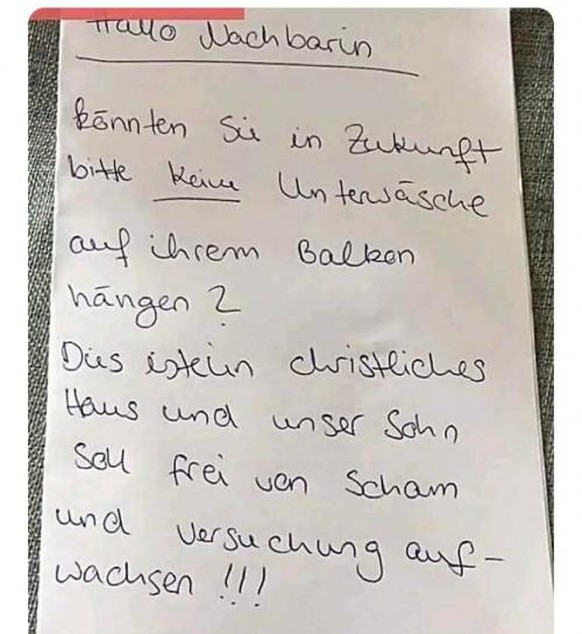 Hallo Nachbarin
könnten Sie in Zukunft
bitte keine Unterwäsche
auf ihrem Balkon
hängen?
Dies ist ein christliches
Haus und unser Sohn
soll frei von Scham
und Versuchung auf-
wachsen!!!